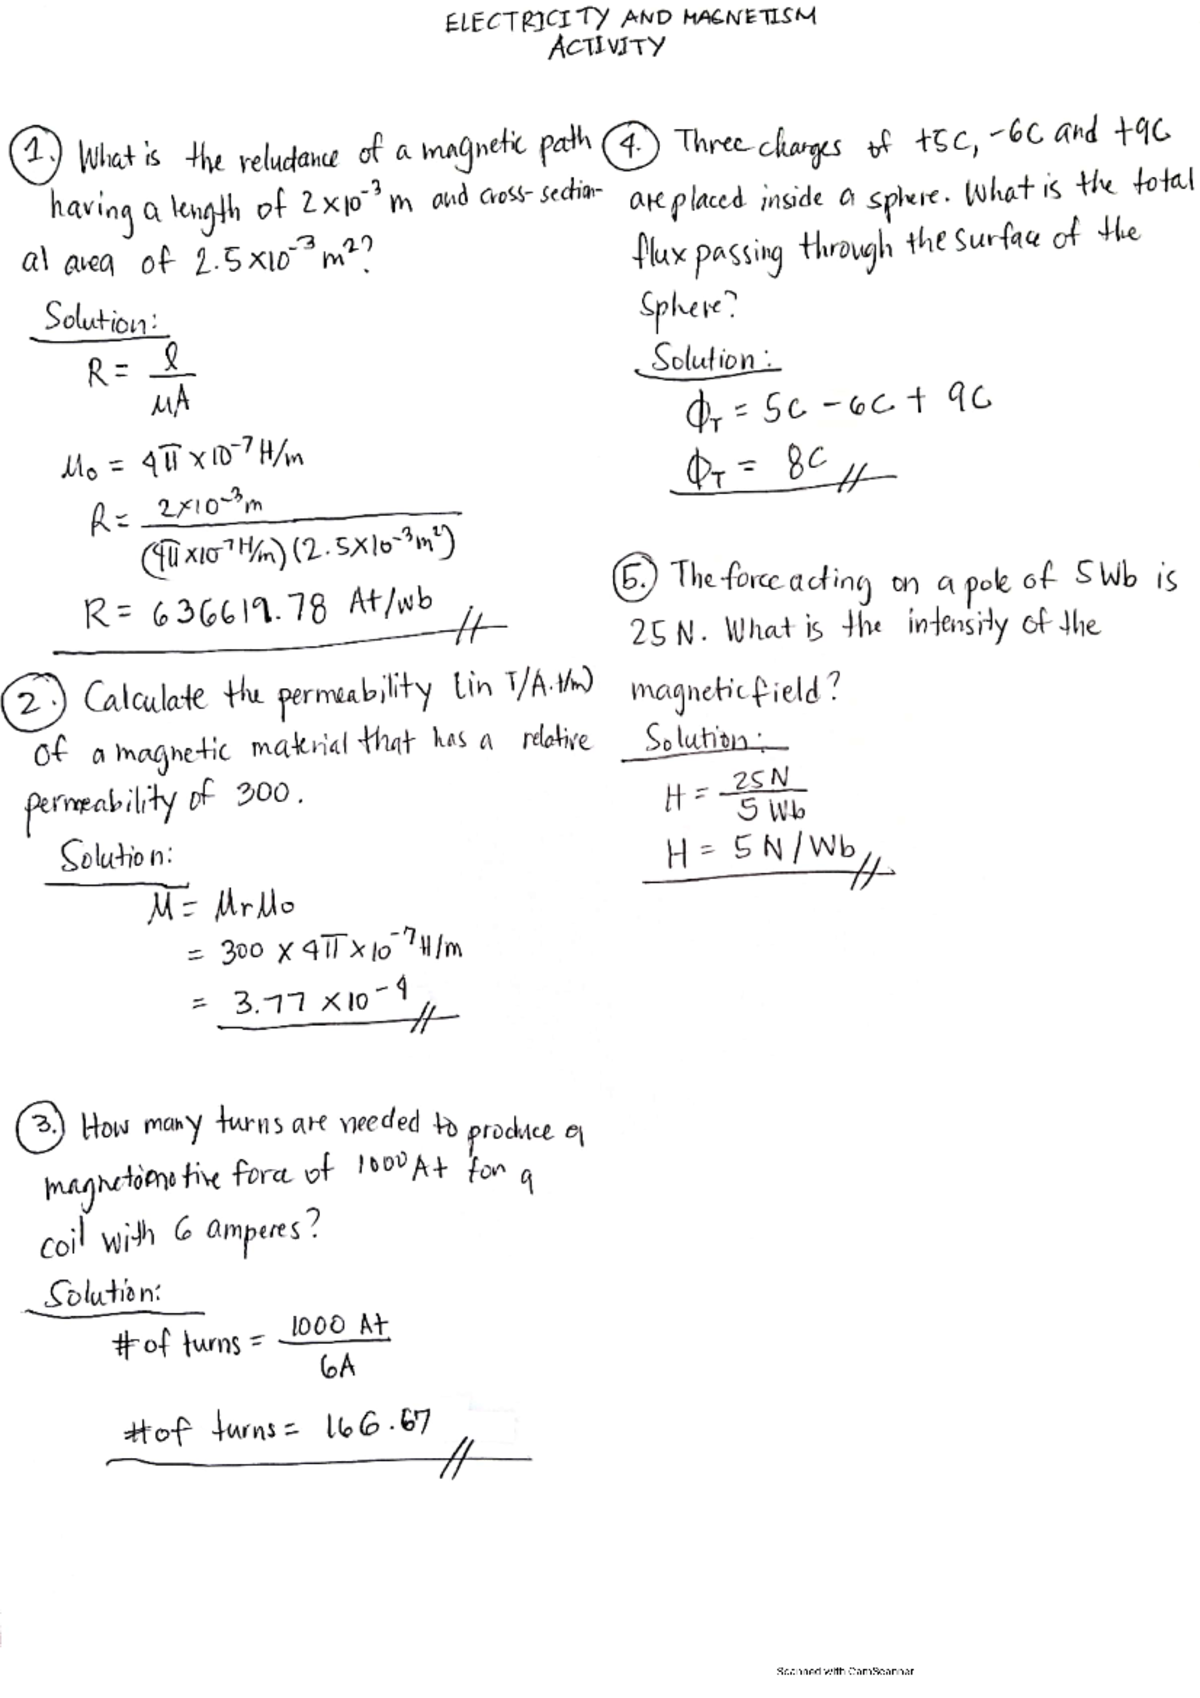 ELECTRICITY AND MAGNETISM
ACTIVITY
1. What is the reluctance of a magnetic path
having a length of 2×10⁻³ m and cross-section-
al area of 2.5×10⁻³ m²?
Solution:
R = l
μA
μ₀ = 4π × 10⁻⁷ H/m
R = 2×10⁻³ m
(4π×10⁻⁷ H/m) (2.5×10⁻³ m²)
R = 636619.78 At/wb
2. Calculate the permeability (in T/A.t/m)
of a magnetic material that has a relative
permeability of 300.
Solution:
μ = μrμ₀
= 300 × 4π × 10⁻⁷ H/m
= 3.77 × 10⁻⁴
3. How many turns are needed to produce a
magnetomotive force of 1000 At for a
coil with 6 amperes?
Solution:
# of turns = 1000 At
6A
# of turns = 166.67
4. Three charges of +5C, -6C and +9C
are placed inside a sphere. What is the total
flux passing through the surface of the
Sphere?
Solution:
ϕT = 5C - 6C + 9C
ϕT = 8C
5. The force acting on a pole of 5 Wb is
25 N. What is the intensity of the
magnetic field?
Solution:
H = 25 N
5 Wb
H = 5 N/Wb
Scanned with CamScanner